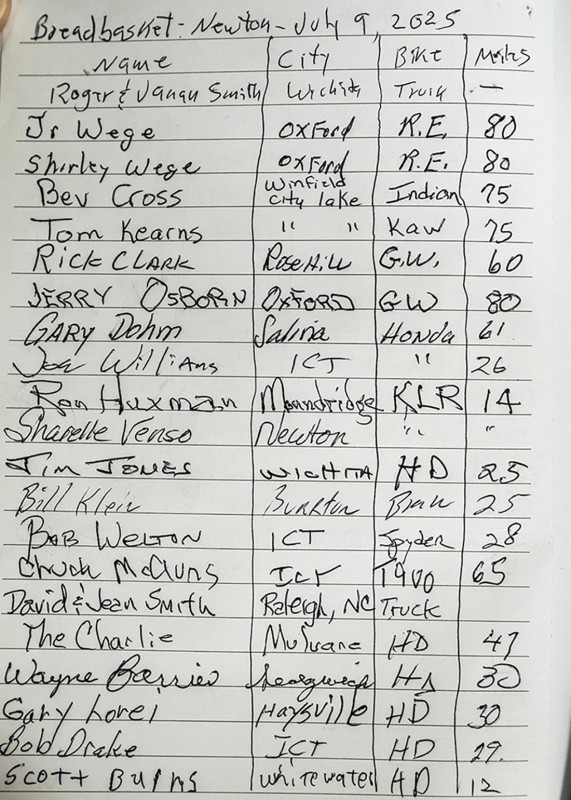 Breadbasket - Newton - July 9, 2025
Name City Bike Miles
Roger & Janan Smith Wichita Truck —
Jr Wege Oxford R.E. 80
Shirley Wege Oxford R.E. 80
Bev Cross Winfield City lake Indian 75
Tom Kearns " " Kaw 75
Rick Clark Rose Hill G.W. 60
Jerry Osborn Oxford GW 80
Gary Dohm Salina Honda 61
Joe Williams ICT " 26
Ron Huxman Moundridge KLR 14
Sharelle Venso Newton " "
Jim Jones Wichita HD 25
Bill Klein Burrton 25
Bob Welton ICT Spyder 28
Chuck ICT 65
David & Jean Smith Raleigh, NC Truck
The Charlie Mulvane HD 47
Wayne Sedgwick HD 30
Gary Haysville HD 30
Bob Drake ICT HD 29.
Scott Burns Whitewater HD 12